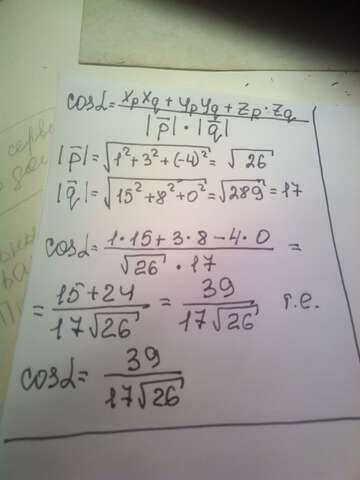 cosα = XpXq + YpYq + Zp·Zq / |p̄|·|q̄|
|p̄| = √(1² + 3² + (-4)²) = √26
|q̄| = √(15² + 8² + 0²) = √289 = 17
cosα = 1·15 + 3·8 - 4·0 / √26 · 17 =
= 15 + 24 / 17√26 = 39 / 17√26 т.е.
cosα = 39 / 17√26